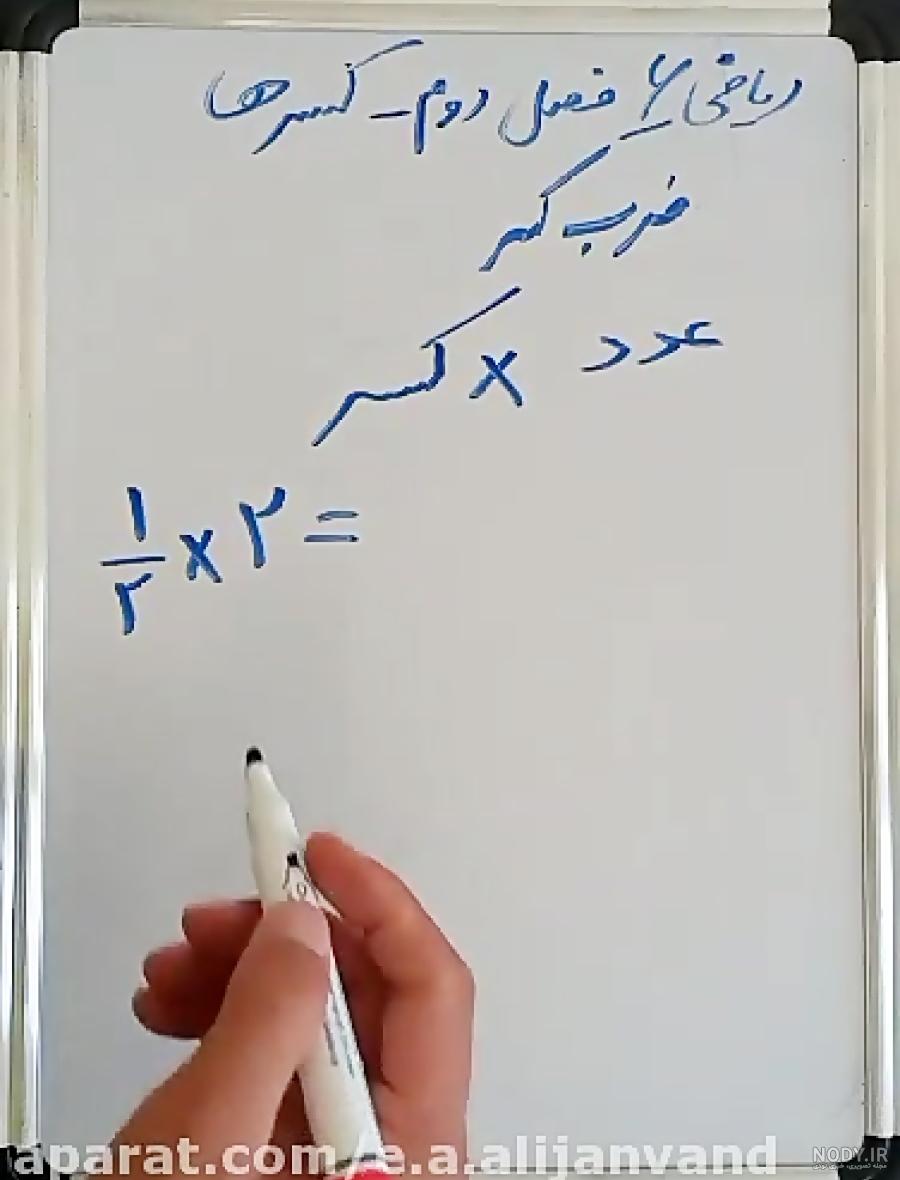 ریاضی ۶ فصل دوم - کسرها
ضرب کسر
عدد × کسر
۱/۲ × ۲ =
aparat.com/e.a.alijanvand
NODY.IR